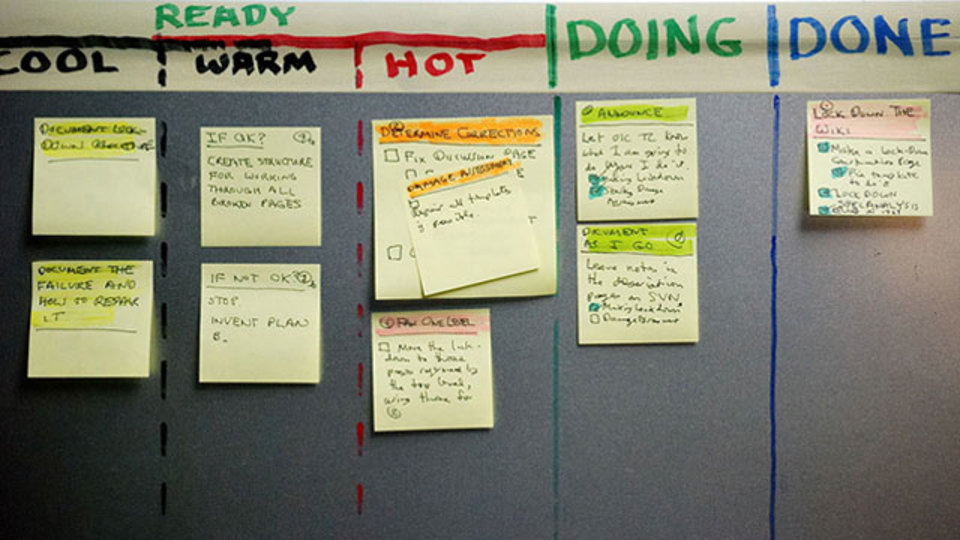 READY
COOL
WARM
HOT
DOING
DONE
DOCUMENT LOCK-
DOWN
DOCUMENT THE
FAILURE AND
HOW TO REPAIR
IT
IF OK?
CREATE STRUCTURE
FOR WORKING
THROUGH ALL
BROKEN PAGES
IF NOT OK?
STOP.
INVENT PLAN
B.
DETERMINE CORRECTIONS
FIX DISCUSSION PAGE
DAMAGE ASSESSMENT
Repair all templates
if possible.
FAN ONE LEVEL
Move the lock-
down to those
pages
the top level,
using theme for
ANNOUNCE
Let OIC TZ know
what I am going to
do before I do it
Making Lockdown
Starting Damage
Assessment
DOCUMENT
AS I GO
Leave notes in
the discussion
pages on SVN
Making Lockdown
Damage Assessment
LOCK DOWN THE
WIKI
Make a Lock-Down
Configuration Page
Fix template
to do it
LOCK DOWN